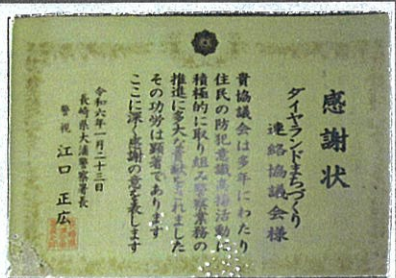 感謝状
ダイヤランドまちづくり
連絡協議会様
貴協議会は多年にわたり
住民の防犯意識高揚活動に
積極的に取り組み警察業務の
推進に多大な貢献をされました
その功労は顕著であります
ここに深く感謝の意を表します
令和六年一月二十三日
長崎県大浦警察署長
警視 江口正広